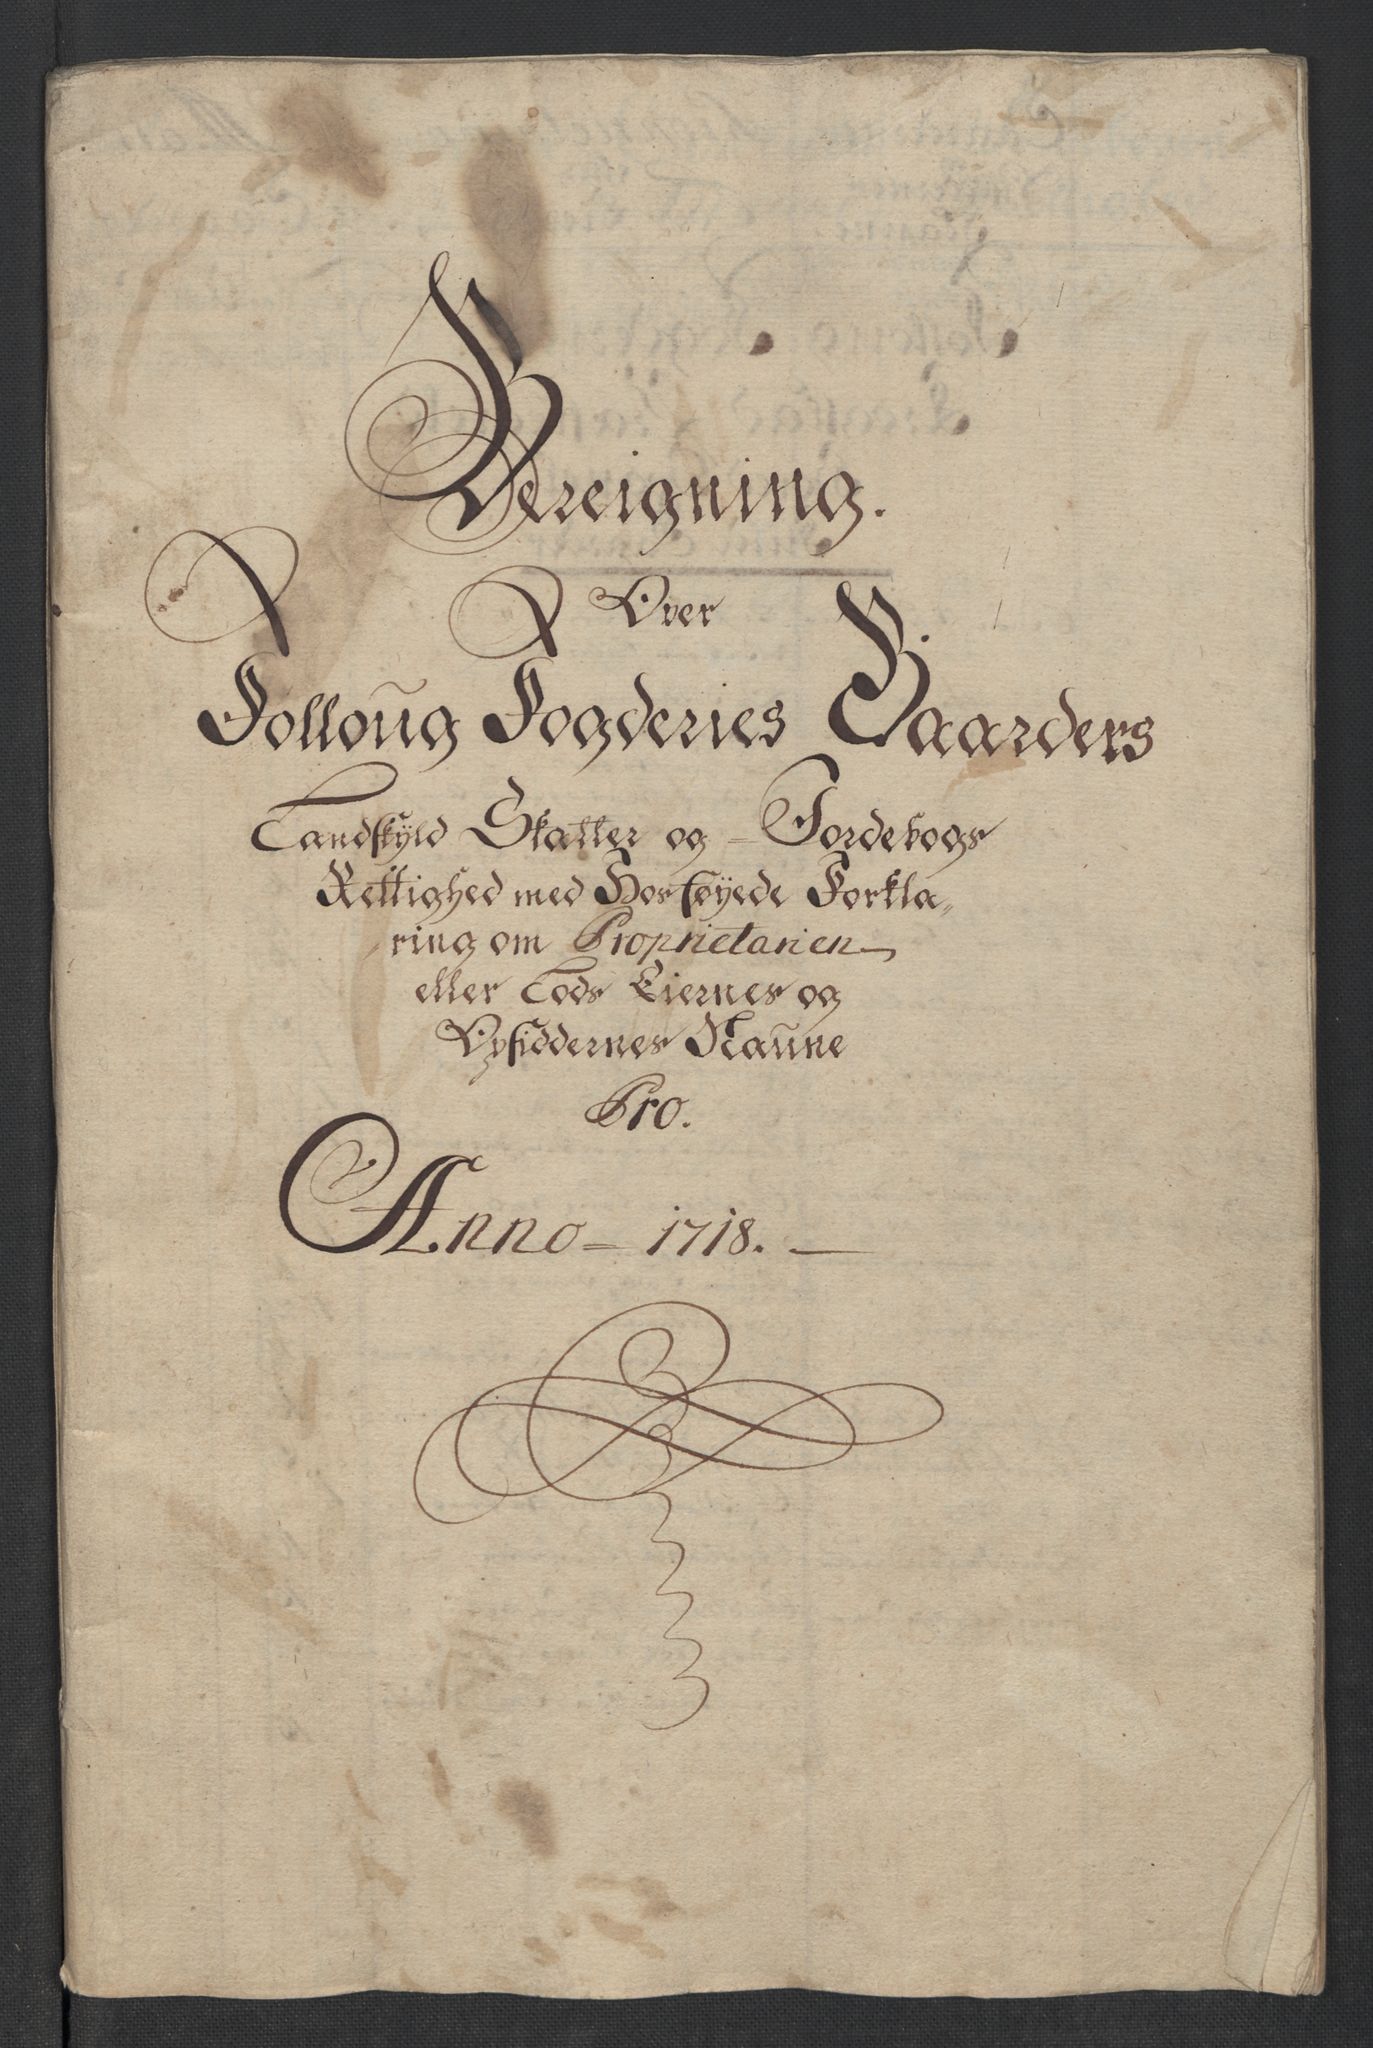 Bereigning.
Over
Folloŭg Fogderies Gaarders
Landskÿld Skatter og - Jordebogs
Rettighed med Hosføyede Forkla,,
ring om Proprietarien
eller Lods Eiernes og
Opsiddernes Naŭne
Pro.
Anno - 1718. -